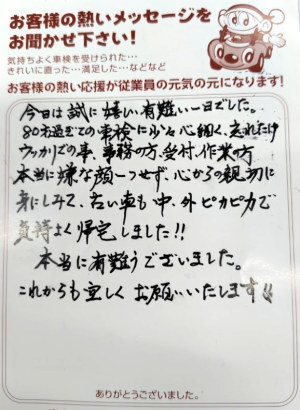 お客様の熱いメッセージを
お聞かせ下さい!
気持ちよく車検を受けられた…
きれいに直った…満足した…などなど
お客様の熱い応援が従業員の元気の元になります!
今日は誠に嬉しい有難い一日でした。
80才過ぎての車検に少々心細く、忘れたけ
ウッカリての事、事務の方、受付、作業の方
本当に嫌な顔一つせず、心からの親切に
身にしみて、古い車も中、外ピカピカで
気持よく帰宅しました!!
本当に有難うございました。
これからも宜しくお願いいたします!!
ありがとうございました。